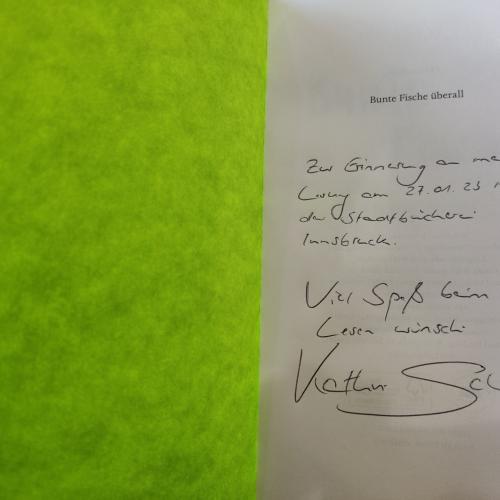 Bunte Fische überall
Zur Erinnerung an
Lesung am 27.01.23
der Stadtbücherei
Innsbruck.
Viel Spaß beim
Lesen wünscht
Kathrin